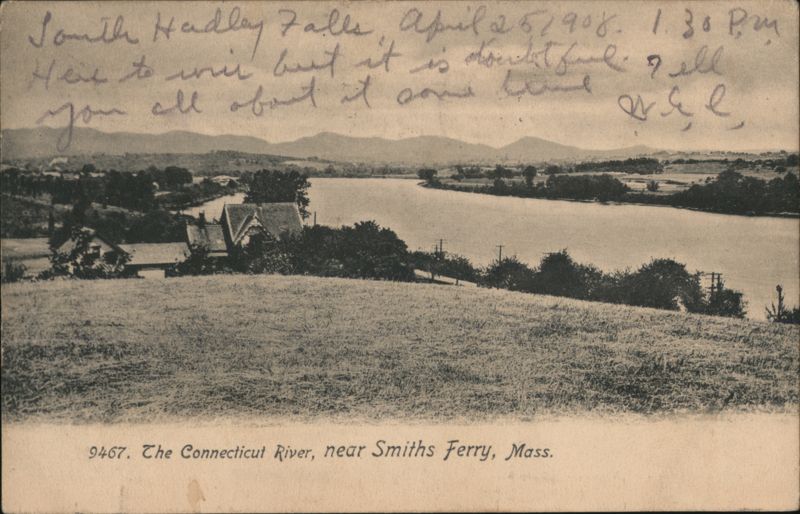 South Hadley Falls, April 25/1908. 1.30 P.M
Here to win but it is doubtful. I'll tell
you all about it some time
W.E.C.
9467. The Connecticut River, near Smiths Ferry, Mass.